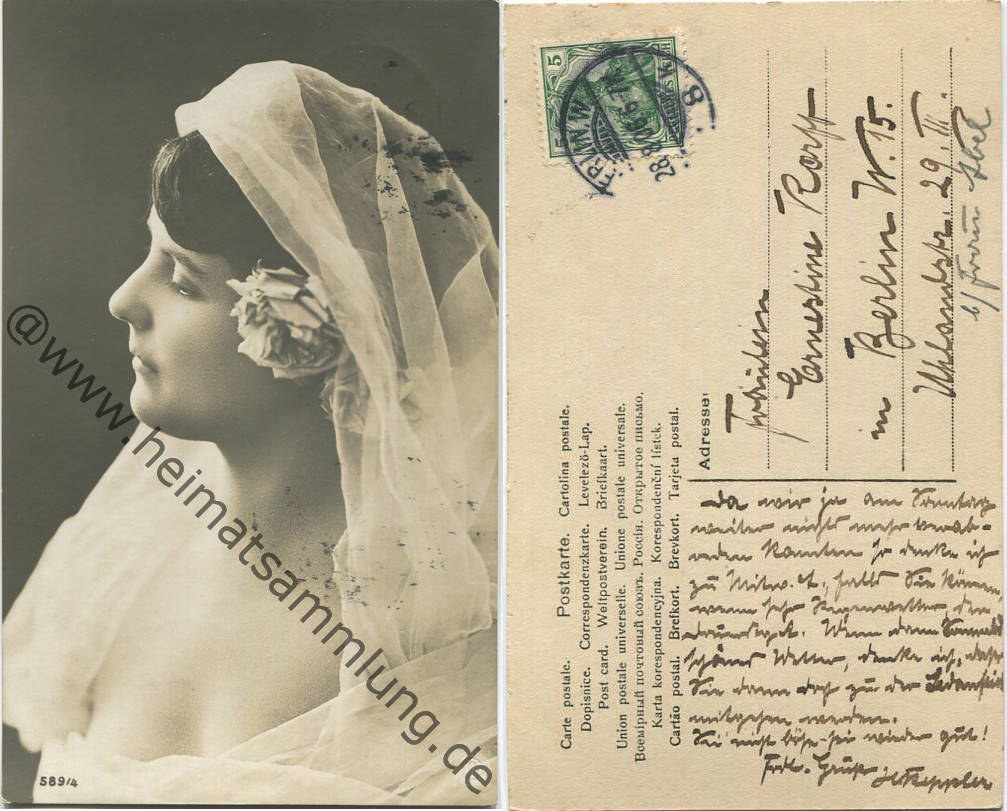 @www.heimatsammlung.de
589/4
5
28.8.
8
Carte postale. Postkarte. Cartolina postale.
Dopisnice. Correspondenzkarte. Levelező-Lap.
Post card. Weltpostverein. Briefkaart.
Union postale universelle. Unione postale universale.
Всемірный почтовый союзъ. Россія. Открытое письмо.
Karta korespondencyjna. Korespondenční lístek.
Cartão postal. Brefkort. Brevkort. Tarjeta postal.
Adresse:
Fräulein
Ernestine Korff
in Berlin W. 15.
Uhlandstr. 29 III.
b/ Frau Abel
Da wir ja am Sonntag
weiter nichts mehr verab-
reden konnten so denke ich
zu Mittw. falls Sie können
wenn sehr Regenwetter
Wenn dann
schönes Wetter, denke ich, dass
Sie dann doch zu der Sedanfeier
mitgehen werden.
Sei nicht böse - sei wieder gut!
Frdl. Gruß H Keppler